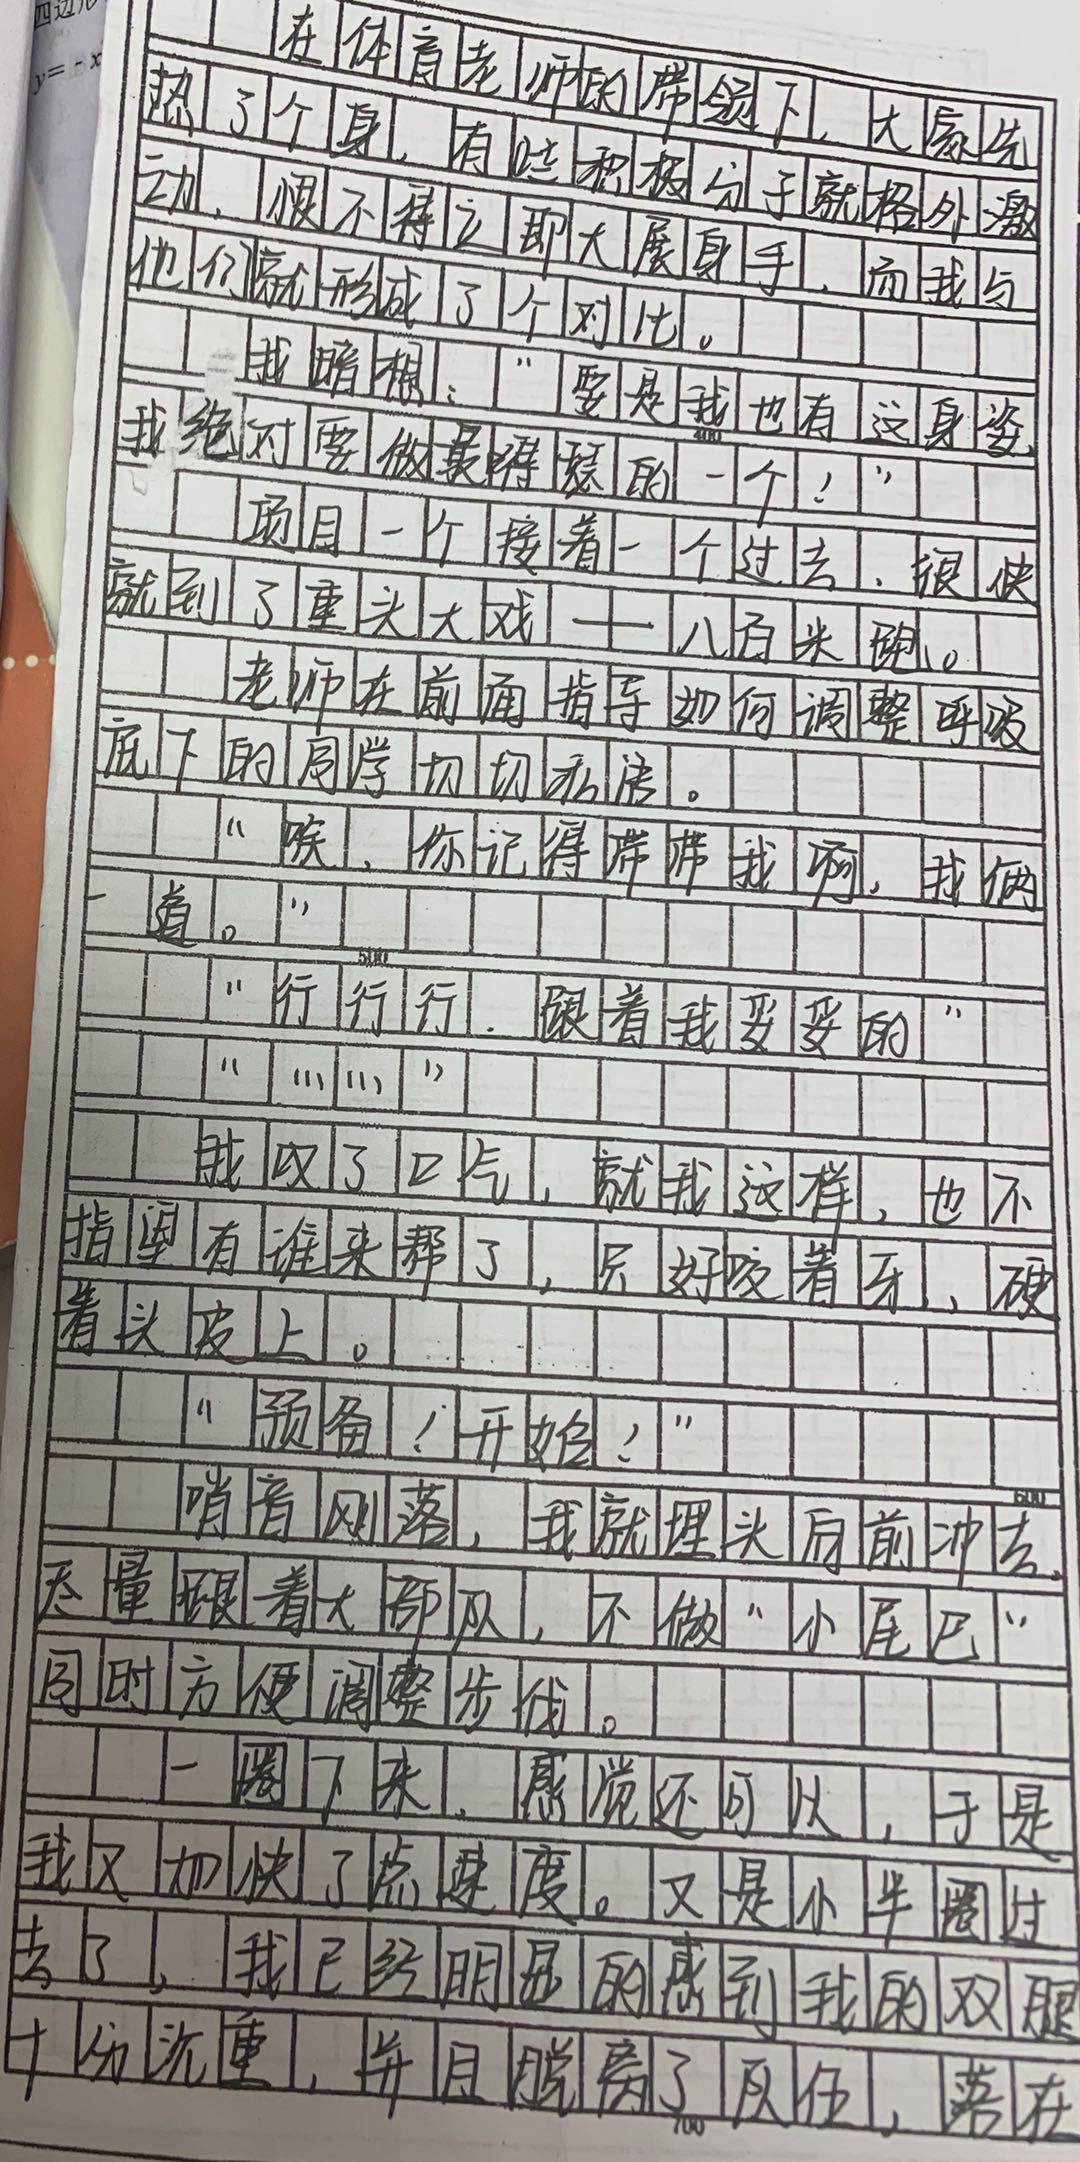 四边形
y=-x
在体育老师的带领下，大家先
热了个身，有些积极分子就格外激
动，恨不得立即大展身手，而我与
他们就形成了个对比。
我暗想：“要是我也有这身姿，
400
我绝对要做最嘚瑟的一个！”
项目一个接着一个过去，很快
就到了重头大戏——八百米跑。
老师在前面指导如何调整呼吸
底下的同学切切私语。
“唉，你记得带带我啊，我俩
一道。”
500
“行行行，跟着我妥妥的”
“……”
我叹了口气，就我这样，也不
指望有谁来帮了，只好咬着牙，硬
着头皮上。
“预备！开始！”
600
哨音刚落，我就埋头向前冲去，
尽量跟着大部队，不做“小尾巴”
同时方便调整步伐。
一圈下来，感觉还可以，于是
我又加快了点速度。又是小半圈过
去了，我已经明显的感到我的双腿
十分沉重，并且脱离了队伍，落在
700